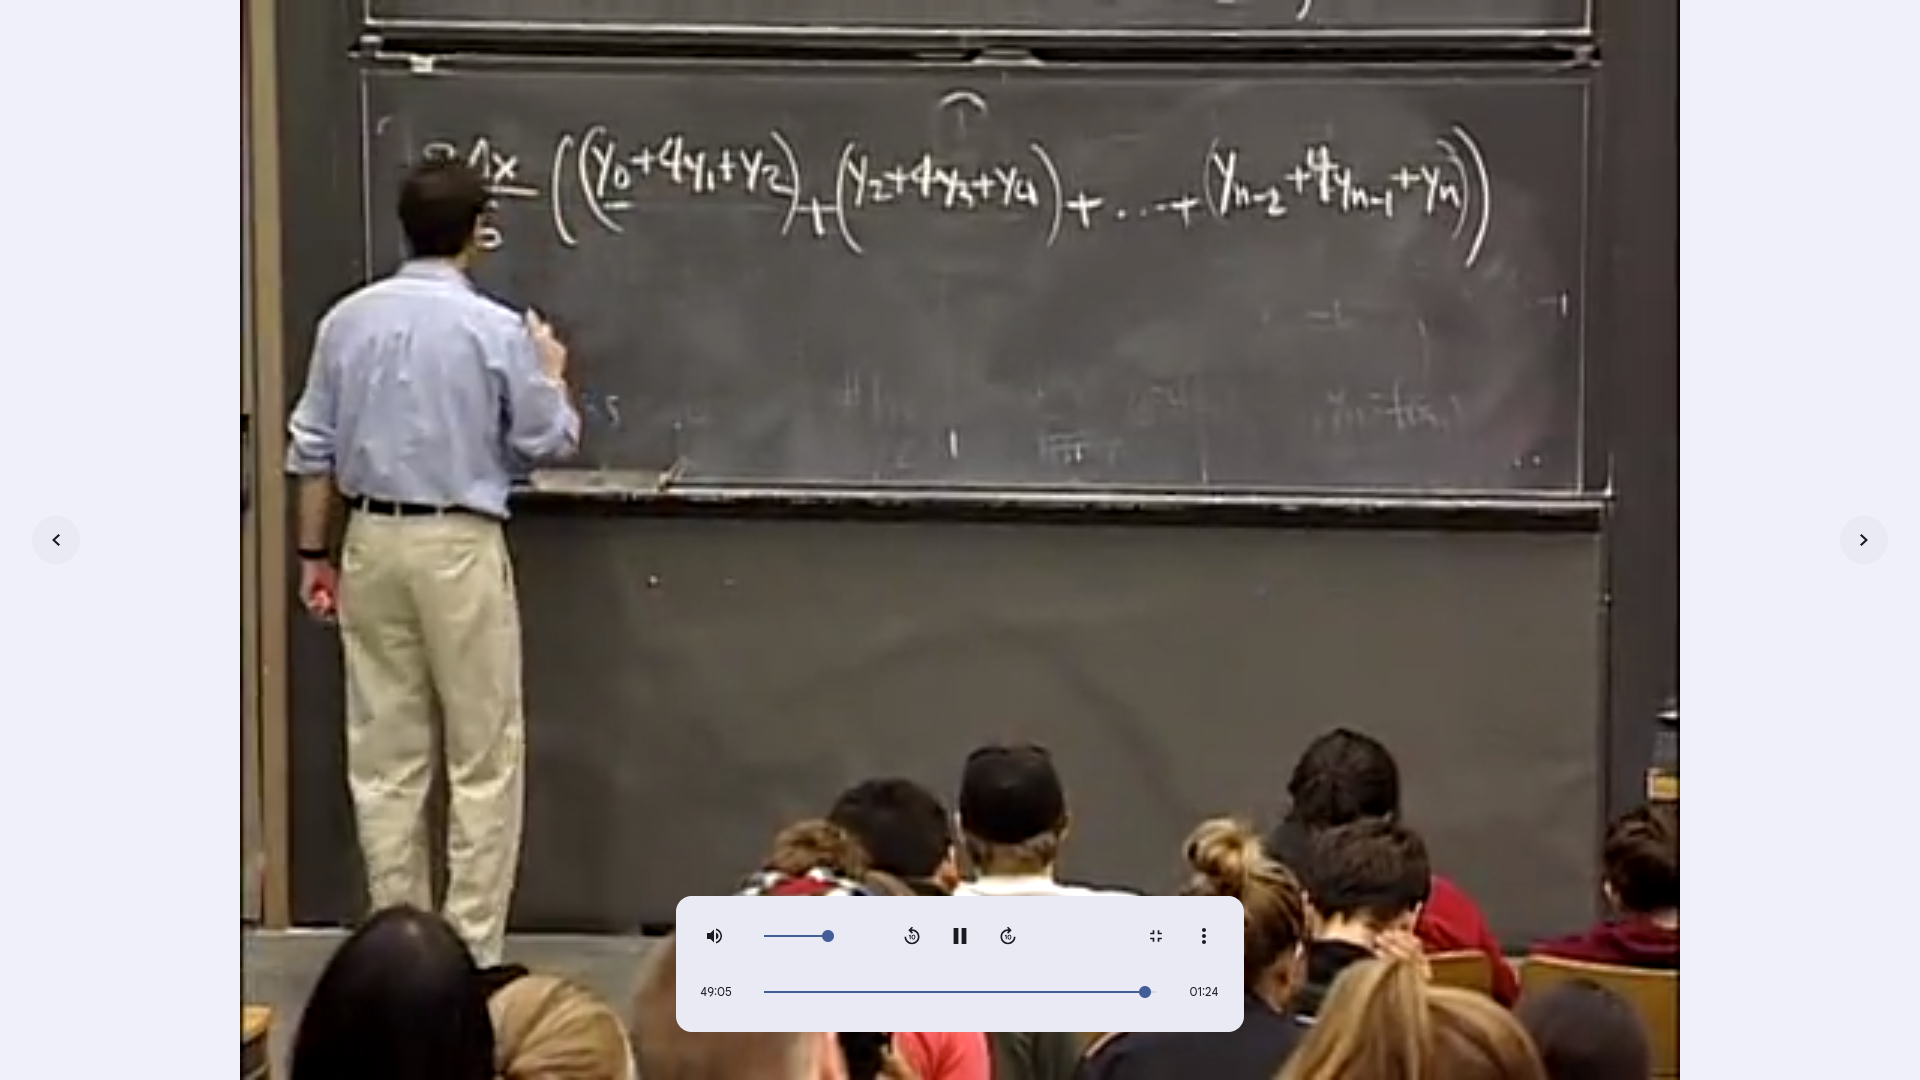 2Δx/6 ((y₀+4y₁+y₂)+(y₂+4y₃+y₄)+...+(yₙ₋₂+4yₙ₋₁+yₙ))
49:05
01:24